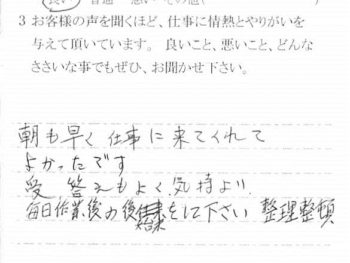 良い 普通 悪い その他( )
3 お客様の声を聞くほど、仕事に情熱とやりがいを
与えて頂いています。良いこと、悪いこと、どんな
ささいな事でもぜひ、お聞かせ下さい。
朝も早く仕事に来てくれて
よかったです
受答えもよく気持よい
毎日作業後の後始末をして下さい 整理整頓